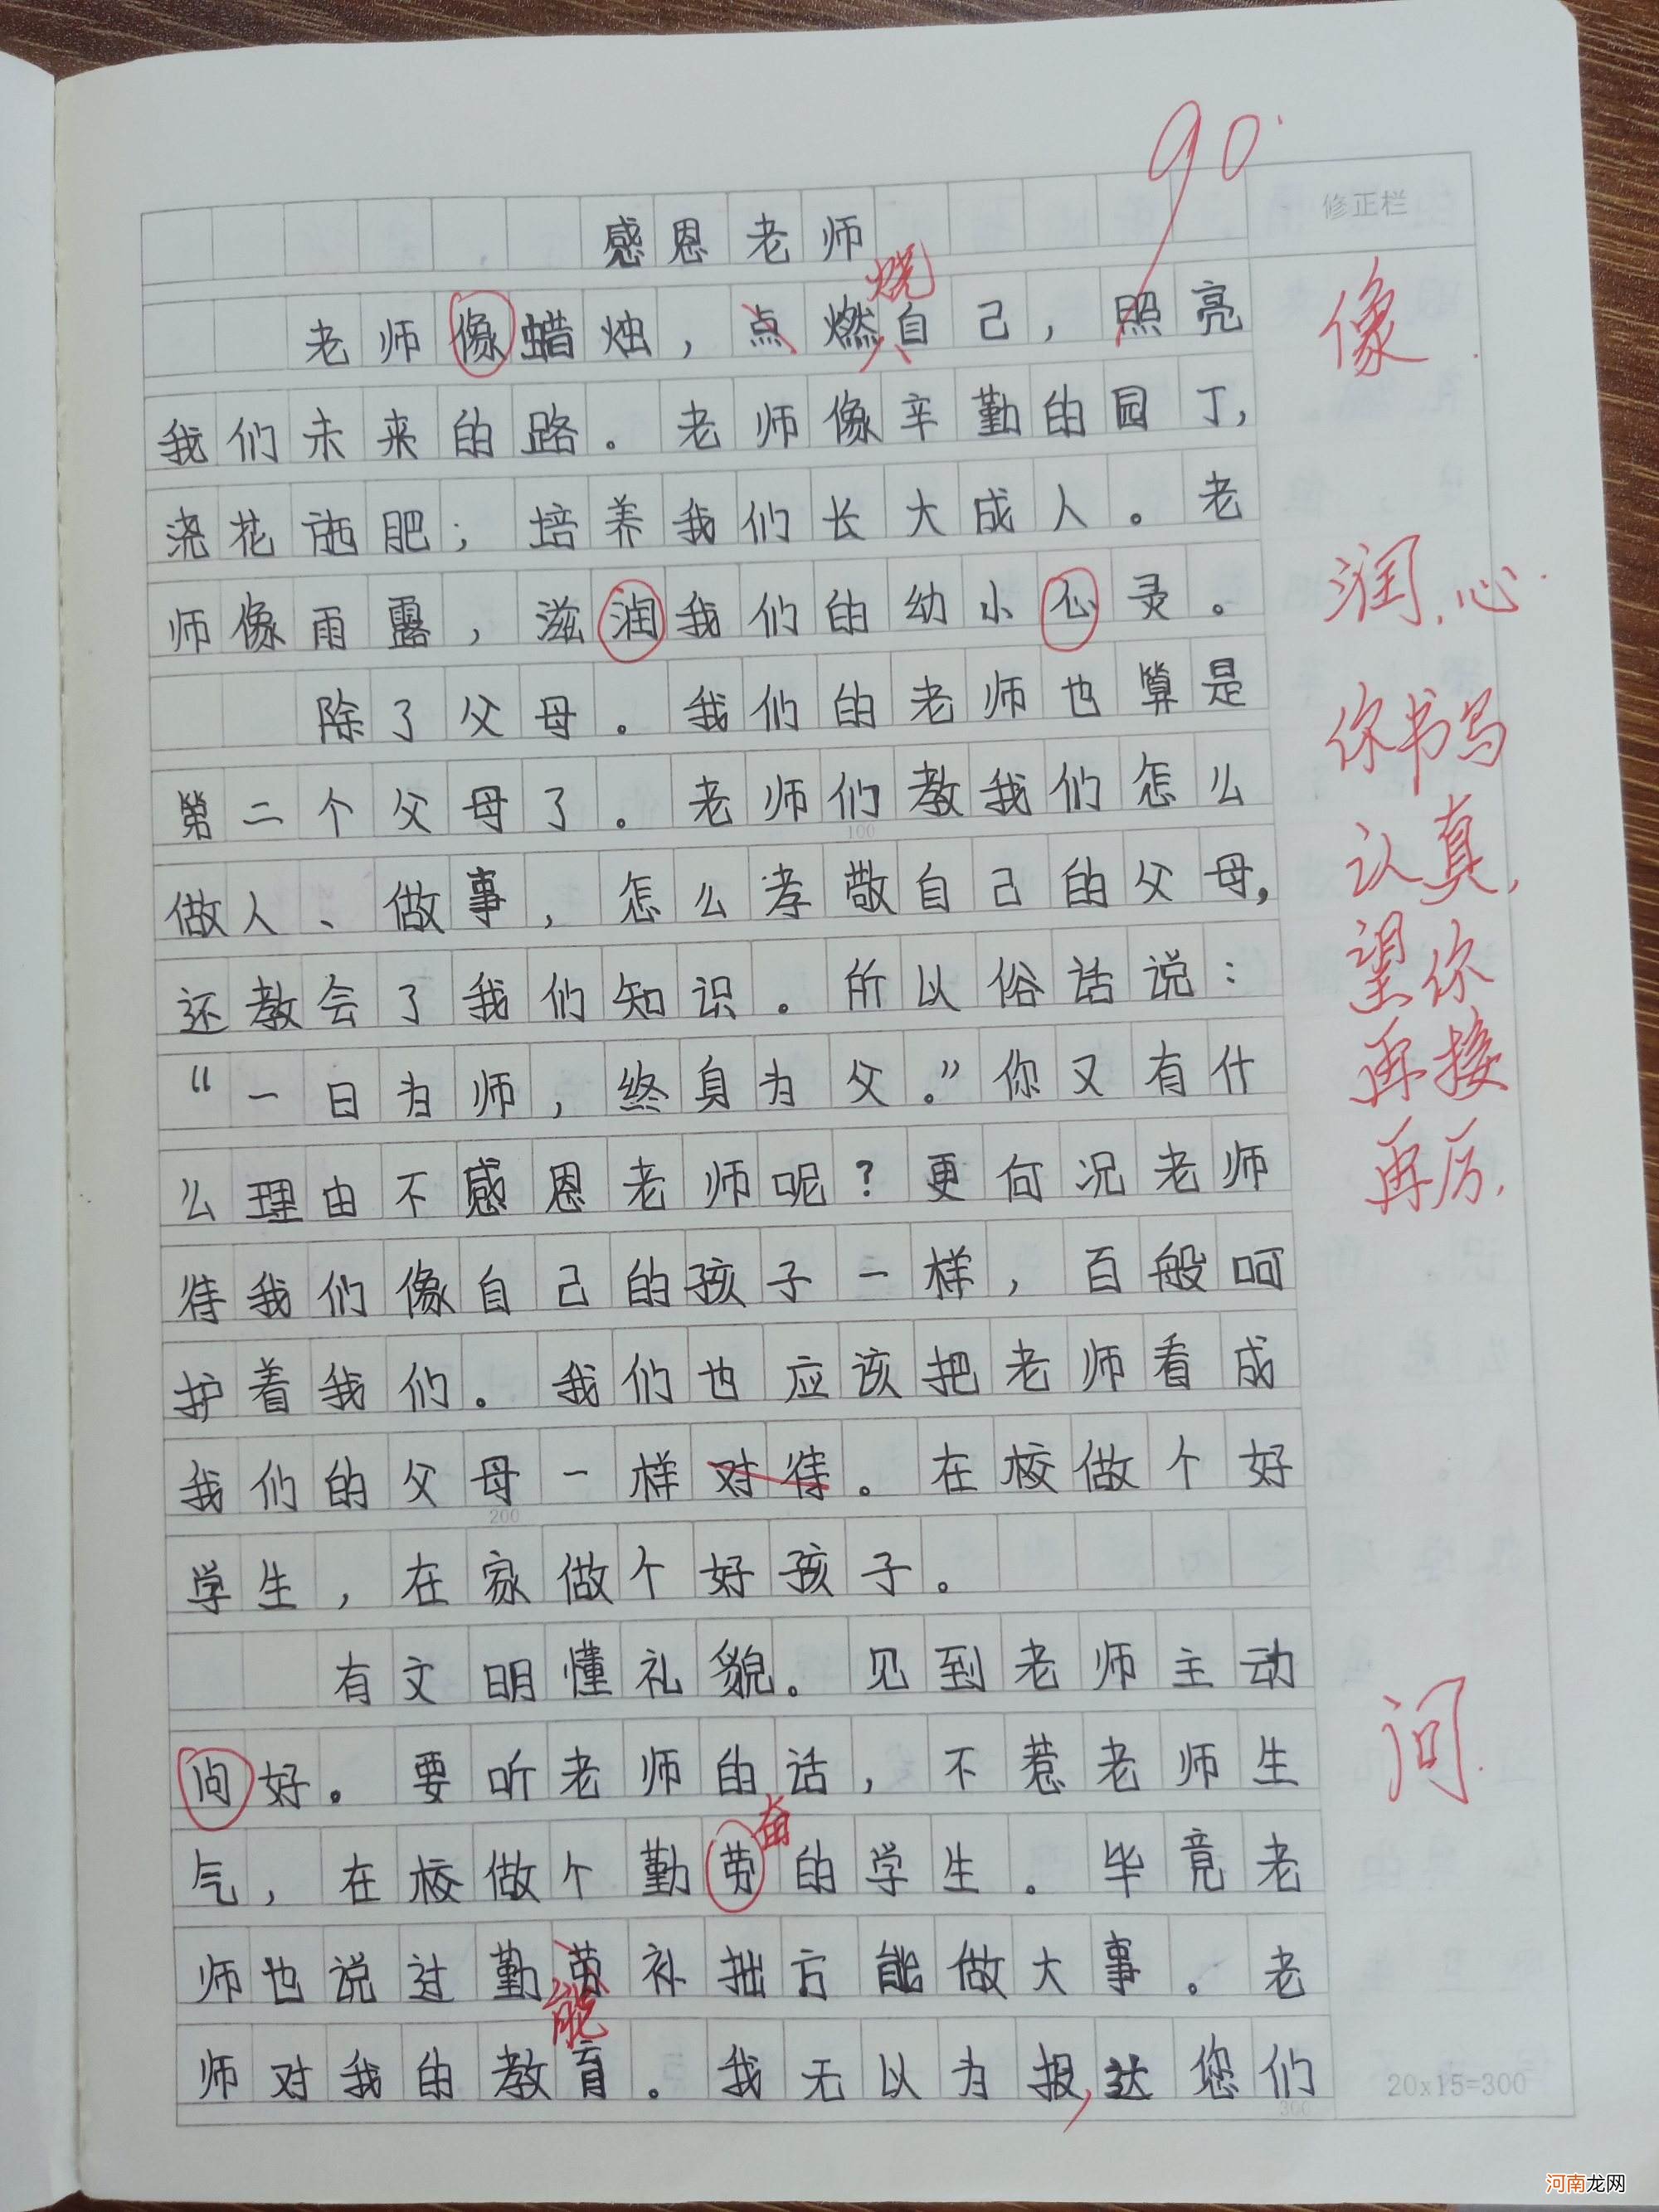 90
修正栏
感恩老师
烧
老师像蜡烛，点燃自己，照亮
像
我们未来的路。老师像辛勤的园丁，
浇花施肥；培养我们长大成人。老
师像雨露，滋润我们的幼小心灵。
润、心
除了父母。我们的老师也算是
你书写
第二个父母了。老师们教我们怎么
100
认真，
做人、做事，怎么孝敬自己的父母，
望你
还教会了我们知识。所以俗话说：
再接
“一日为师，终身为父。”你又有什
再厉，
么理由不感恩老师呢？更何况老师
待我们像自己的孩子一样，百般呵
护着我们。我们也应该把老师看成
我们的父母一样对待。在校做个好
200
学生，在家做个好孩子。
有文明懂礼貌。见到老师主动
问好。要听老师的话，不惹老师生
问
奋
气，在校做个勤劳的学生。毕竟老
师也说过勤劳补拙方能做大事。老
能
师对我的教育。我无以为报，达您们
20x15=300
300
河南龙网